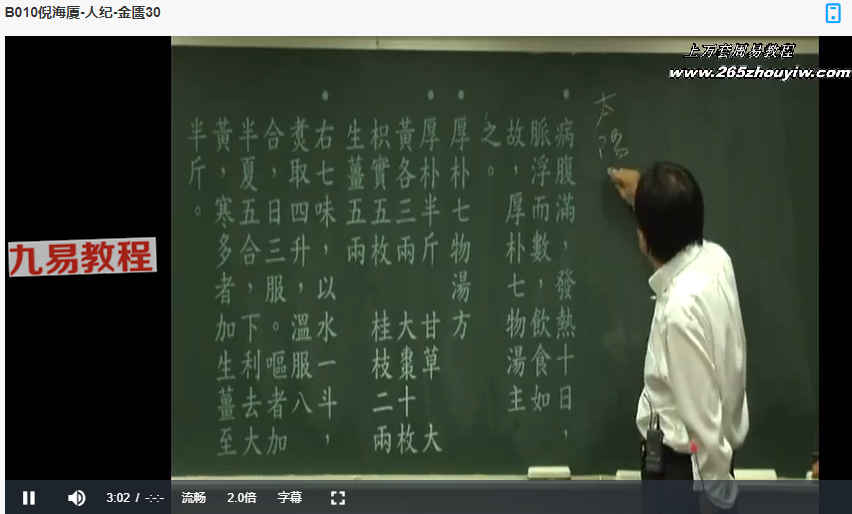 B010倪海厦-人纪-金匮30
上万套周易教程
www.265zhouyiw.com
太陽
• 病腹滿，發熱十日，
脈浮而數，飲食如
故，厚朴七物湯主
之。
• 厚朴七物湯方
• 厚朴半斤 甘草 大
黃各三兩 大棗十枚
枳實五枚 桂枝二兩
生薑五兩
• 右七味，以水一斗，
煑取四升，溫服八
合，日三服。嘔者加
半夏五合，下利去大
黃，寒多者加生薑至
半斤。
九易教程
3:02 / -:-:- 流畅 2.0倍 字幕